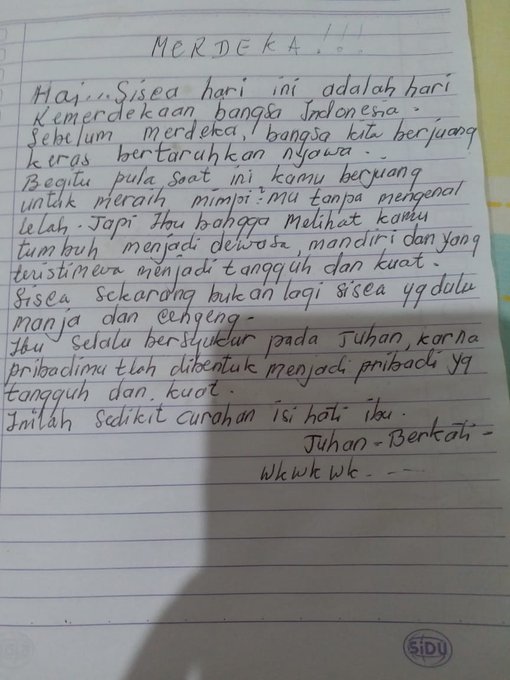 MERDEKA!!!
Hai...Sisca hari ini adalah hari
Kemerdekaan bangsa Indonesia.
Sebelum merdeka, bangsa kita berjuang
keras bertaruhkan nyawa.
Begitu pula saat ini kamu berjuang
untuk meraih mimpi²mu tanpa mengenal
lelah. Tapi Ibu bangga melihat kamu
tumbuh menjadi dewasa, mandiri dan yang
teristimewa menjadi tangguh dan kuat.
Sisca sekarang bukan lagi sisca yg dulu
manja dan cengeng.
Ibu selalu bersyukur pada Tuhan, karna
pribadimu tlah dibentuk menjadi pribadi yg
tangguh dan kuat.
Inilah sedikit curahan isi hati ibu.
Tuhan-Berkati-
wkwkwk----
SiDU